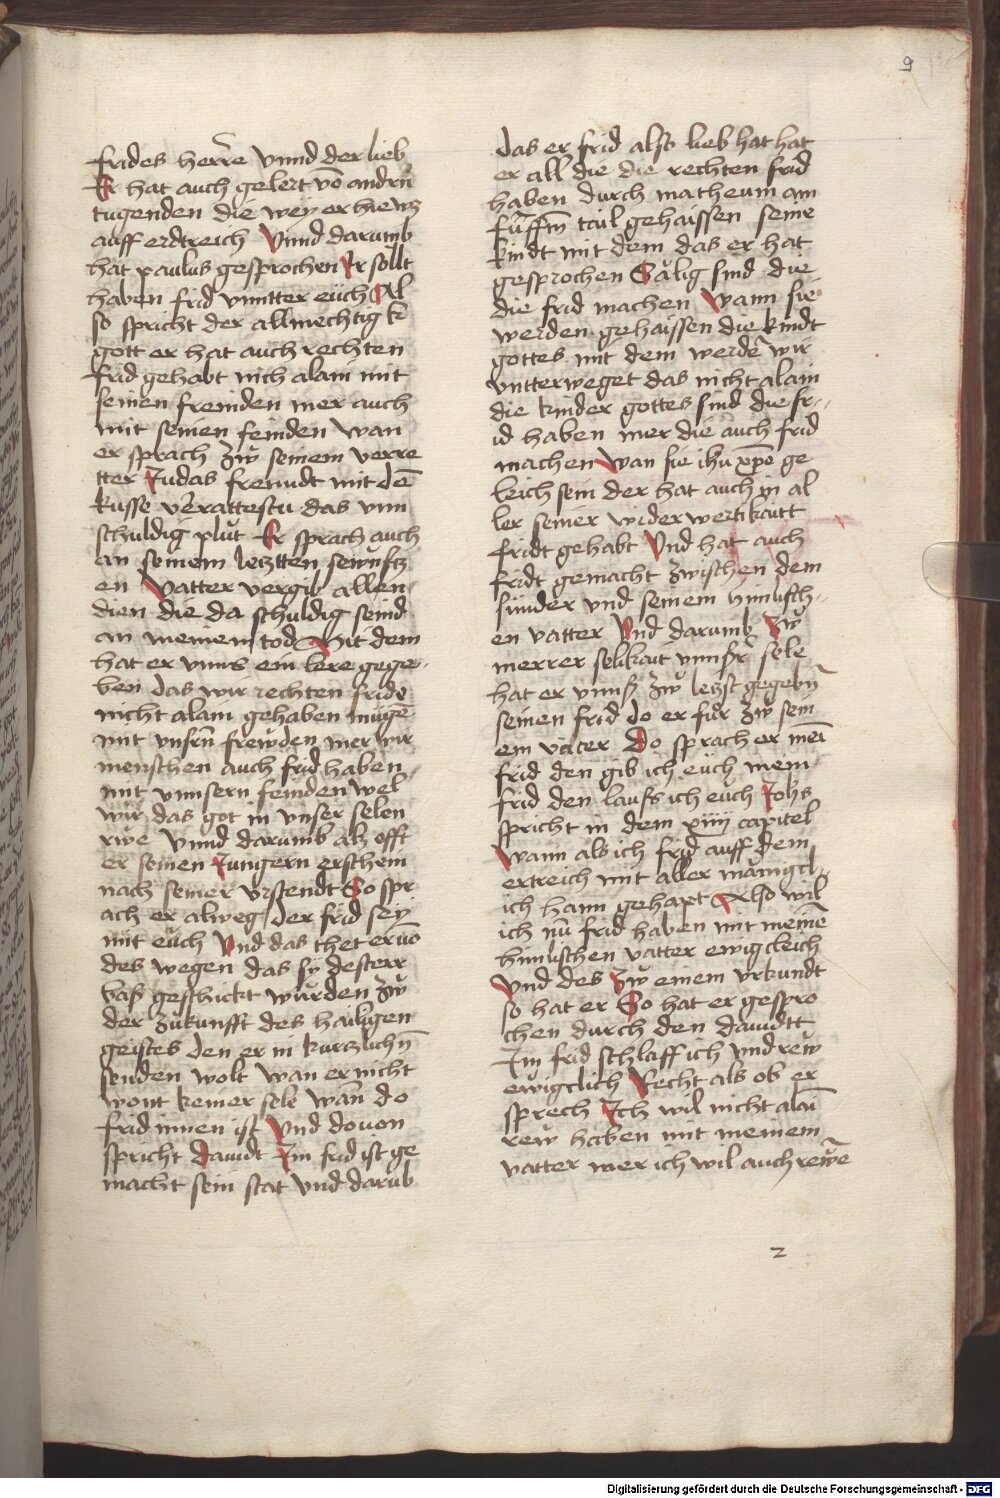 9
frides herre vnnd der lieb
Er hat auch gelert vō andrn̄
tugenden die weÿ er hie wz
auff erdtreich Vnnd darumb
hat paulus gesprochen Ir sollt
haben frid vnntter eüch Al
so spricht der allmechtig k
gott er hat auch rechten
frid gehabt nich alain mit
seinen freinden mer auch
mit seinen feinden Wan
er sprach zw̆ seinem verre
tter Judas freundt mit dē
kusse verrattestu das vnn
schuldig plut Er sprach auch
an seinem letztten sewnftz
en Vatter vergib allen
dien die da schuldig seind
an meinem tod Mit dem
hat er vnns ein lere gege
ben das wir rechten fride
nicht alain gehaben mügē
mit vnsrn̄ frewden mer wir
menschen auch frid haben
mit vnnsern feinden wel
wir das got in vnser selen
rwe Vnnd darumb alz offt
er seinen Jungern erschein
nach seiner vrstendt So spr
ach er alweg der frid seÿ
mit eüch Vnd das thet er vō
des wegen das sÿ desterr
baß geschickt wurden zw̆
der zukunfft des hailigen
geistes den er in kurczlichn̄
senden wolt wan er nicht
wont keiner sele wān do
frid innen ist Vnd douon
spricht Dauidt Im frid ist ge
macht sein stat vnd darūb
das er frid also lieb hat hat
er all die die rechten frid
haben durch matheum am
fu̇nfftn̄ tail gehaissen seine
kindt mit dem das er hat
gesprochen Sälig sind die
die frid machen Wann sie
werden gehaissen die kindt
gottes mit dem werdē wir
vntterweget das nicht alain
die kinder gottes sind die fr
id haben mer die auch frid
machen Wan sie ihu xp̄o ge
leich sein der hat auch in al
ler seiner widerwertikaitt
fridt gehabt Vnd hat auch
fridt gemacht zwischen dem
sünder vnd seinem himlisch
en vatter Vnd darumb Zw̆
merrer selikait vnnsr̄ sele
hat er vnnß zw̆ letzst gegebn̄
seinen frid do er fu̇r zw̆ sein
em vater Do sprach er mei
frid den gib ich eüch mein
frid den laufs ich euch Johs
spricht in dem xiiii capitel
Wann als ich frid auff dem
ertreich mit aller mänigcl
ich hann gehapt Also wil
ich nū frid haben mit meinē
himlischen vatter ewigcleich
Vnd des zw̆ einem vrkundt
so hat er So hat er gespro
chen durch den dauidtt
Im frid schlaff ich vnd rew̆
ewigclich Recht als ob er
sprech Ich wil nicht alai
rew̆ haben mit meinem
vatter mer ich wil auch rew̆e
2
Digitalisierung gefördert durch die Deutsche Forschungsgemeinschaft - DFG